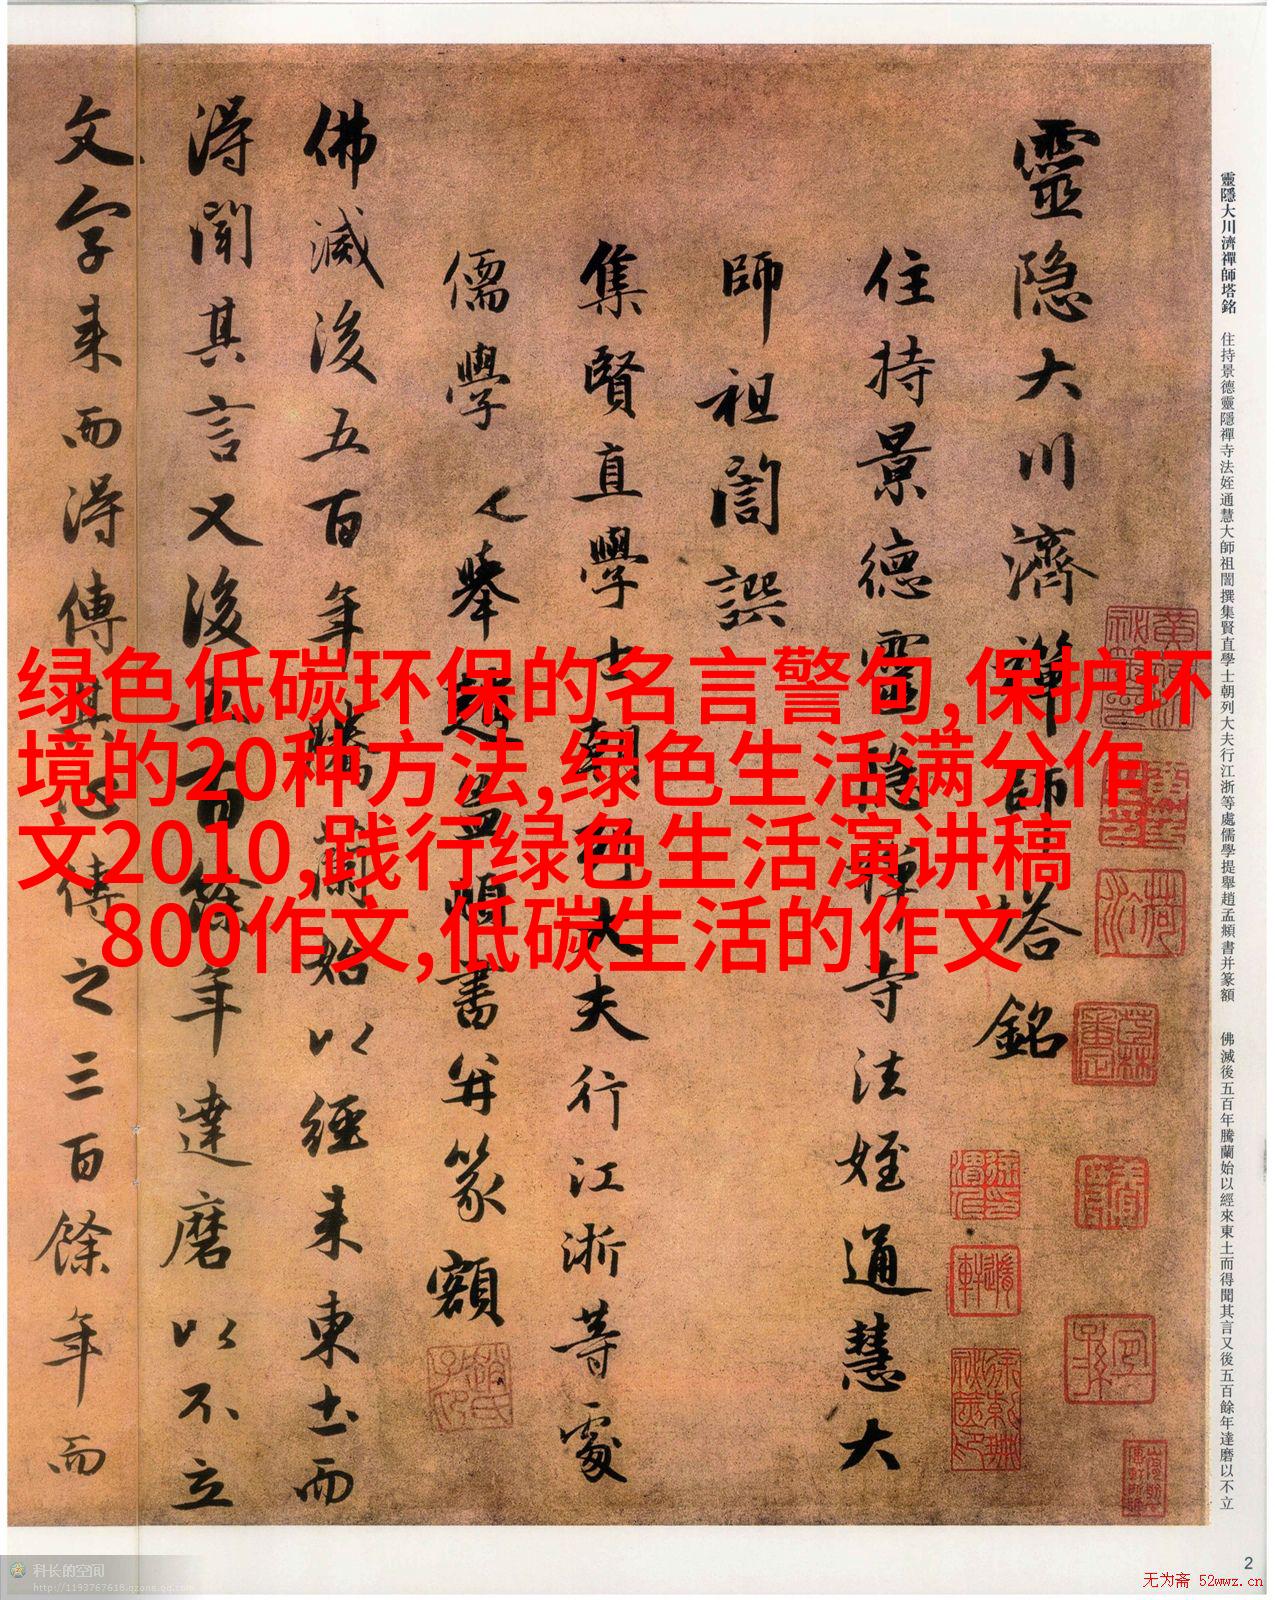 靈隐大川濟禪師塔銘
住持景德靈隐禅寺法姪通慧大
師祖誾譔
集賢直學士朝列大夫行江浙等處
儒學提舉趙孟頫書并篆額
佛滅後五百年騰蘭始以經来東土而
淂聞其言又後五百餘年達磨以不立
文字来而淂傳其心傳之三百餘年而
靈隱大川濟禪師塔銘 住持景德靈隱禪寺法姪通慧大師祖誾撰集賢直學士朝列大夫行江浙等處儒學提舉趙孟頫書并篆額 佛滅後五百年騰蘭始以經來東土而得聞其言又後五百餘年達磨以不立
绿色低碳环保的名言警句,保护环
境的20种方法,绿色生活满分作
文2010,践行绿色生活演讲稿
800作文,低碳生活的作文
2
科长的空间
http://1193767618.qzone.qq.com
无为斋 52wwz.cn